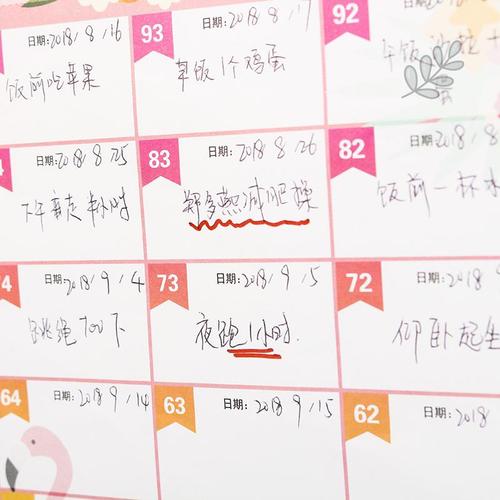 日期:2018/8/16
饭前吃苹果
93
日期:2018/8/17
早饭1个鸡蛋
92
日期:2018
午饭
日期:2018 8 25
下午竞走半小时
83
日期:2018 8 26
郑多燕减肥操
82
日期:2018/8
饭前一杯水
4
日期:2018/9/4
跳绳700下
73
日期:2018/9/5
夜跑1小时.
72
日期:2018 9
仰卧起坐
64
日期:2018 9/14
63
日期:2018 9/15
62
日期:2018